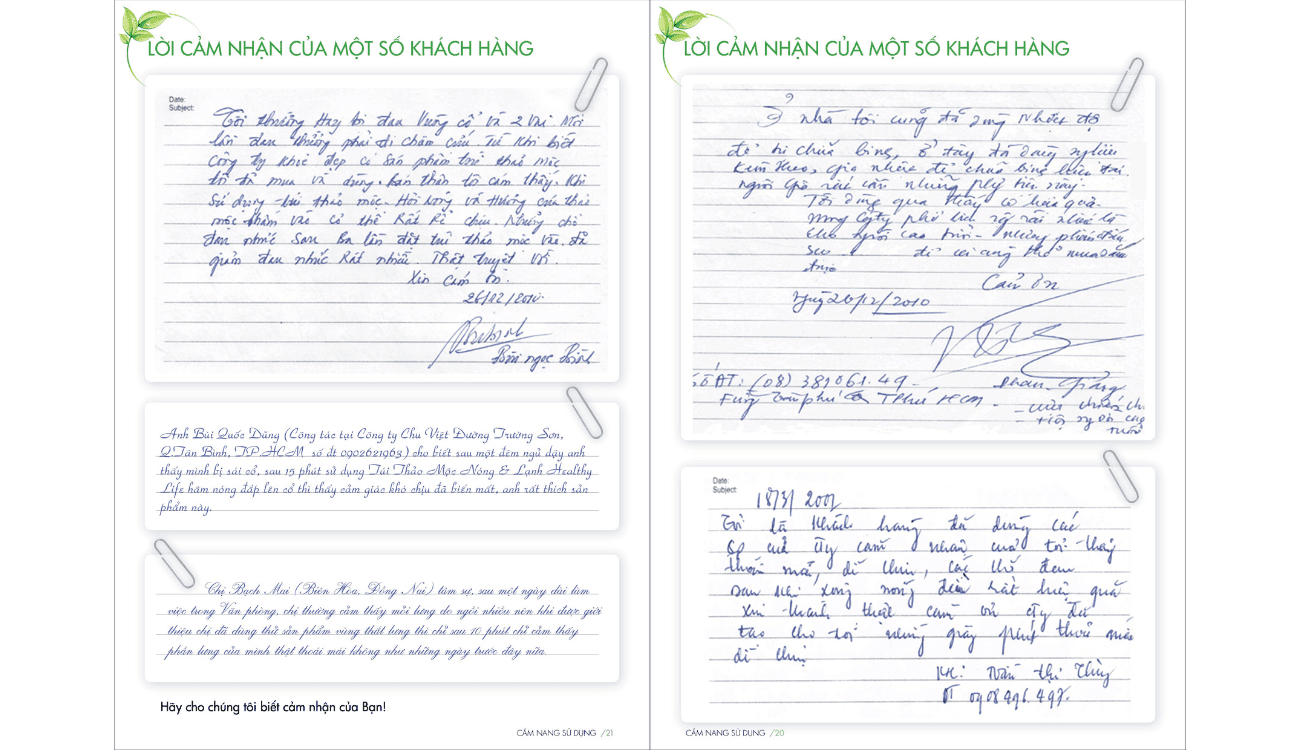 LỜI CẢM NHẬN CỦA MỘT SỐ KHÁCH HÀNG
Date:
Subject:
Tôi thường hay bị đau vương cổ và 2 vai mỗi
lần đau thường phải đi châm cứu. Từ khi biết
công ty khỏe đẹp có sản phẩm túi thảo mộc
tôi đã mua và dùng. bản thân tôi cảm thấy. khi
sử dụng túi thảo mộc. Hơi nóng và hương của thảo
mộc thấm vào cơ thể Rất Rễ chịu. Những chỗ
đau nhức sau ba lần đặt túi thảo mộc vào. đã
giảm đau nhức Rất nhiều. Thật tuyệt vời.
Xin cám ơn.
26/12/2010.
Bùi ngọc Bình
Anh Bùi Quốc Dũng (Công tác tại Công ty Chu Việt Đường Trường Sơn,
Q.Tân Bình, TP.HCM số đt 0902621963) cho biết sau một đêm ngủ dậy anh
thấy mình bị sái cổ, sau 15 phút sử dụng Túi Thảo Mộc Nóng & Lạnh Healthy
Life hâm nóng đắp lên cổ thì thấy cảm giác khó chịu đã biến mất, anh rất thích sản
phẩm này.
Chị Bạch Mai (Biên Hòa, Đồng Nai) tâm sự, sau một ngày dài làm
việc trong Văn phòng, chị thường cảm thấy mỏi lưng do ngồi nhiều nên khi được giới
thiệu chị đã dùng thử sản phẩm vùng thắt lưng thì chỉ sau 10 phút chị cảm thấy
phần lưng của mình thật thoải mái không như những ngày trước đây nữa.
Hãy cho chúng tôi biết cảm nhận của Bạn!
CẨM NANG SỬ DỤNG /21
LỜI CẢM NHẬN CỦA MỘT SỐ KHÁCH HÀNG
Ở nhà tôi cũng đã dùng nhiều
để trị chữa bệnh, ở đây đã dùng
người già rất cần những
Tôi dùng qua thấy có hiệu quả.
mong Cty phổ biến rộng rãi nhất là
cho người cao tuổi -
để ai cũng có thể mua
được
Cảm ơn
Ngày 26/12/2010
Số ĐT: (08) 381061.49 -
TPhú HCM -
Date:
Subject:
18/3/
Tôi là khách hàng đã dùng các
sp của cty cảm nhận của tôi thấy
thoải mái, dễ chịu,
sau khi xong nóng rất hiệu quả
xin thành thật cảm ơn cty đã
tạo cho tôi những giây phút thoải mái
dễ chịu
KH: Trần Thị Thùy
ĐT 0908496.497.
CẨM NANG SỬ DỤNG /20